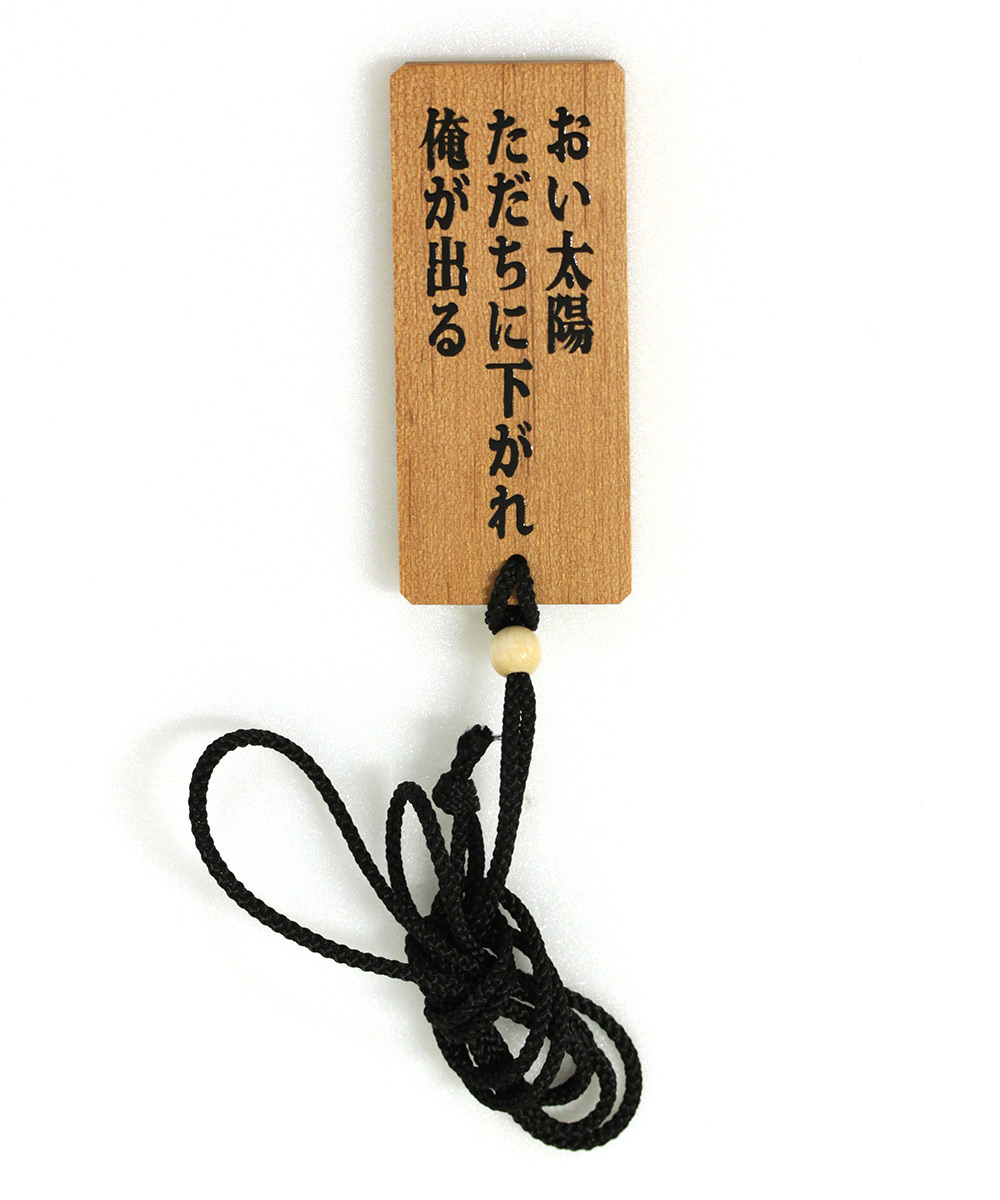 おい太陽
ただちに下がれ
俺が出る